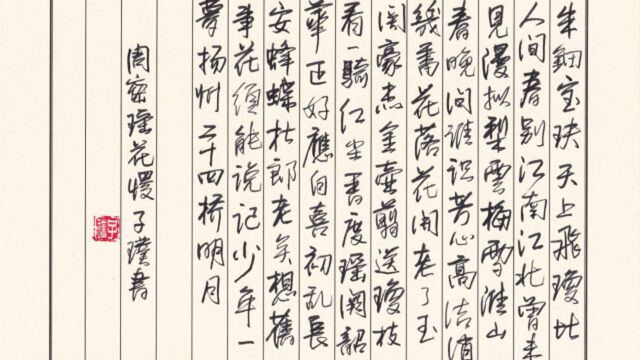 朱鈿宝玦天上飛瓊比
人间春别江南江北曾未
見漫拟梨雲梅雪淮山
春晚问谁識芳心高洁消
幾番花落花開老了玉
関豪杰金壺剪送瓊枝
看一騎红尘香度瑶阙韶
華正好應自喜初乱長
安蜂蝶杜郎老矣想舊
事花须能说記少年一
夢扬州二十四桥明月
周密瑶花慢子璞書